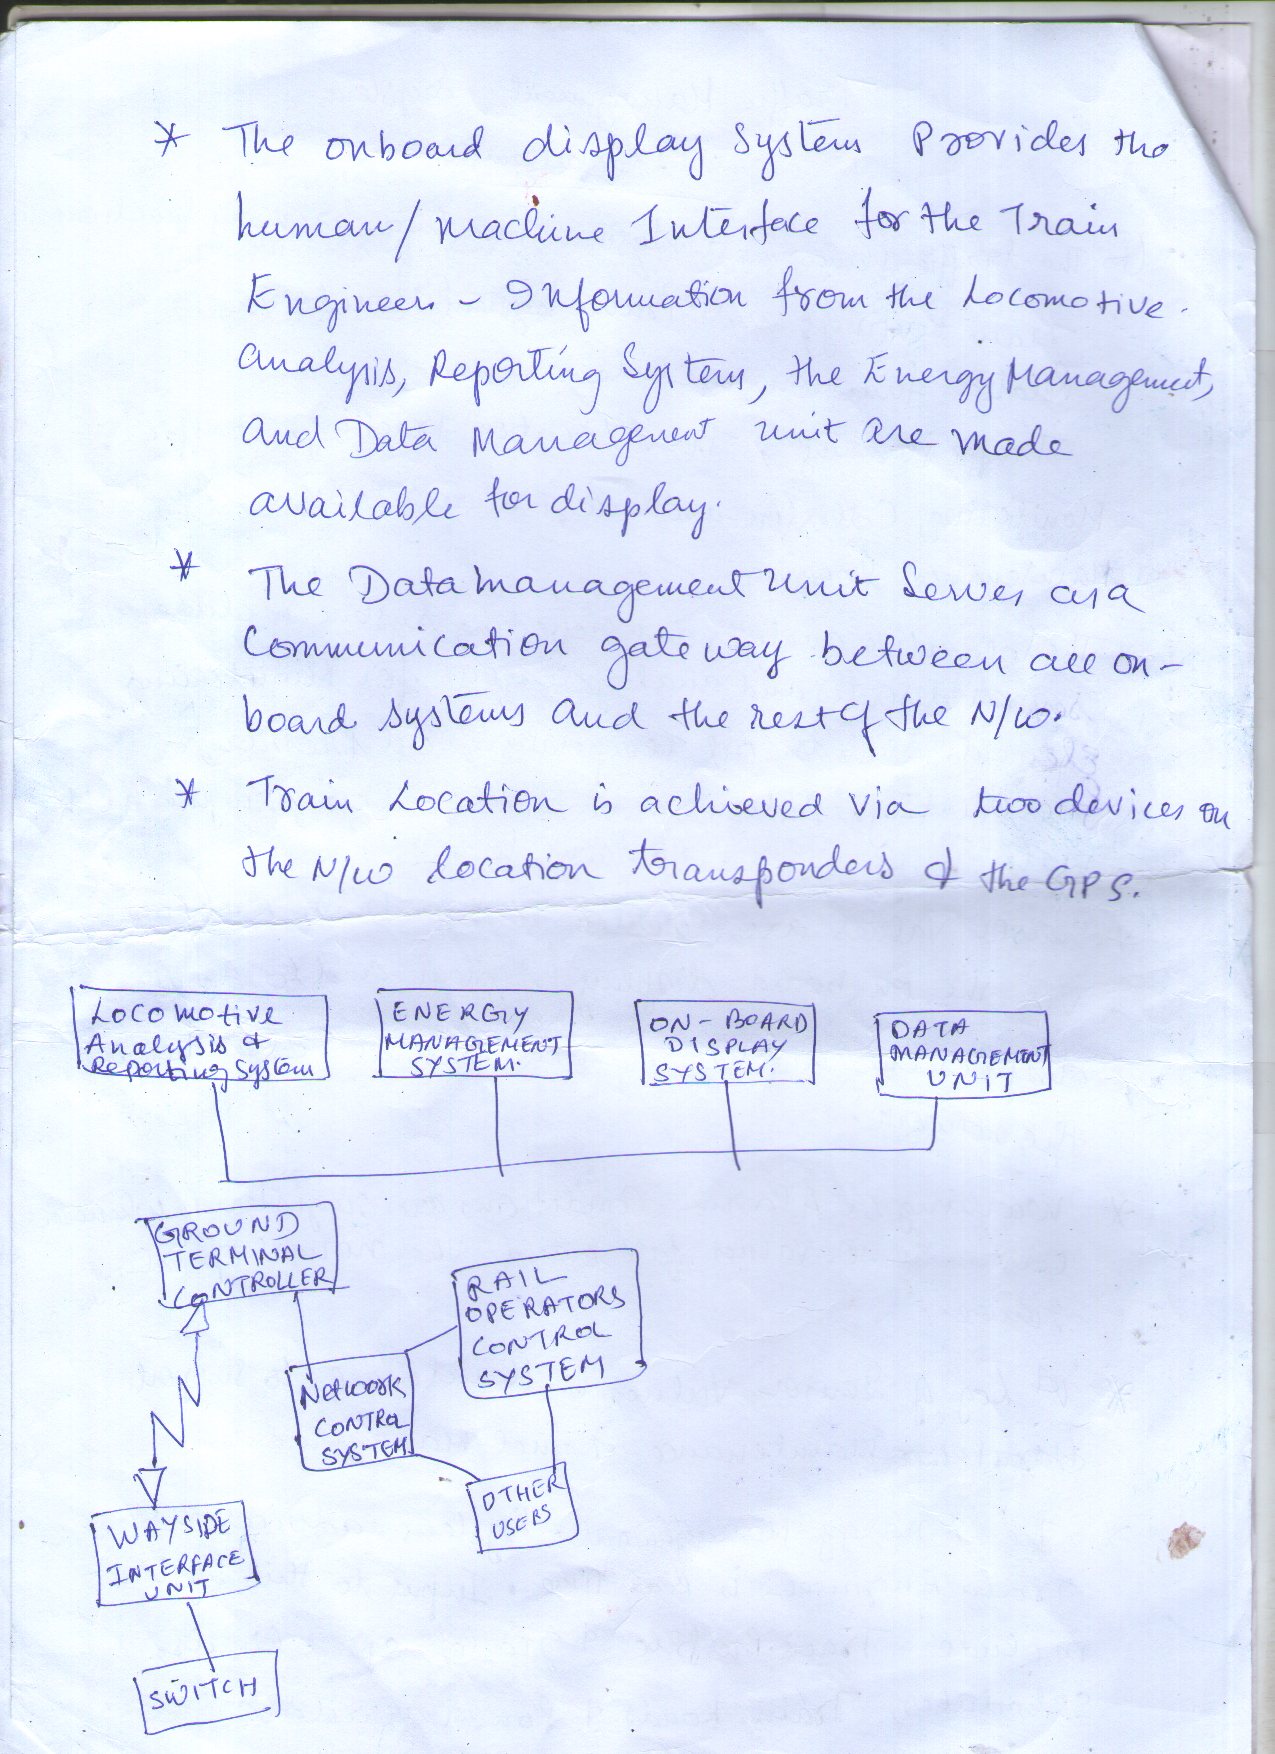 * The onboard display System Provides the
human/machine Interface for the Train
Engineer. - Information from the Locomotive.
Analysis, Reporting System, the Energy Management,
and Data Management unit are made
available for display.
* The Data management unit Serves as a
Communication gateway between all on-
board systems and the rest of the N/w.
* Train Location is achieved via two devices on
the N/w location transponders & the GPS.
Locomotive
Analysis &
Reporting System
ENERGY
MANAGEMENT
SYSTEM.
ON-BOARD
DISPLAY
SYSTEM.
DATA
MANAGEMENT
UNIT
GROUND
TERMINAL
CONTROLLER
RAIL
OPERATORS
CONTROL
SYSTEM
Network
CONTROL
SYSTEM.
OTHER
USERS
WAYSIDE
INTERFACE
UNIT
SWITCH